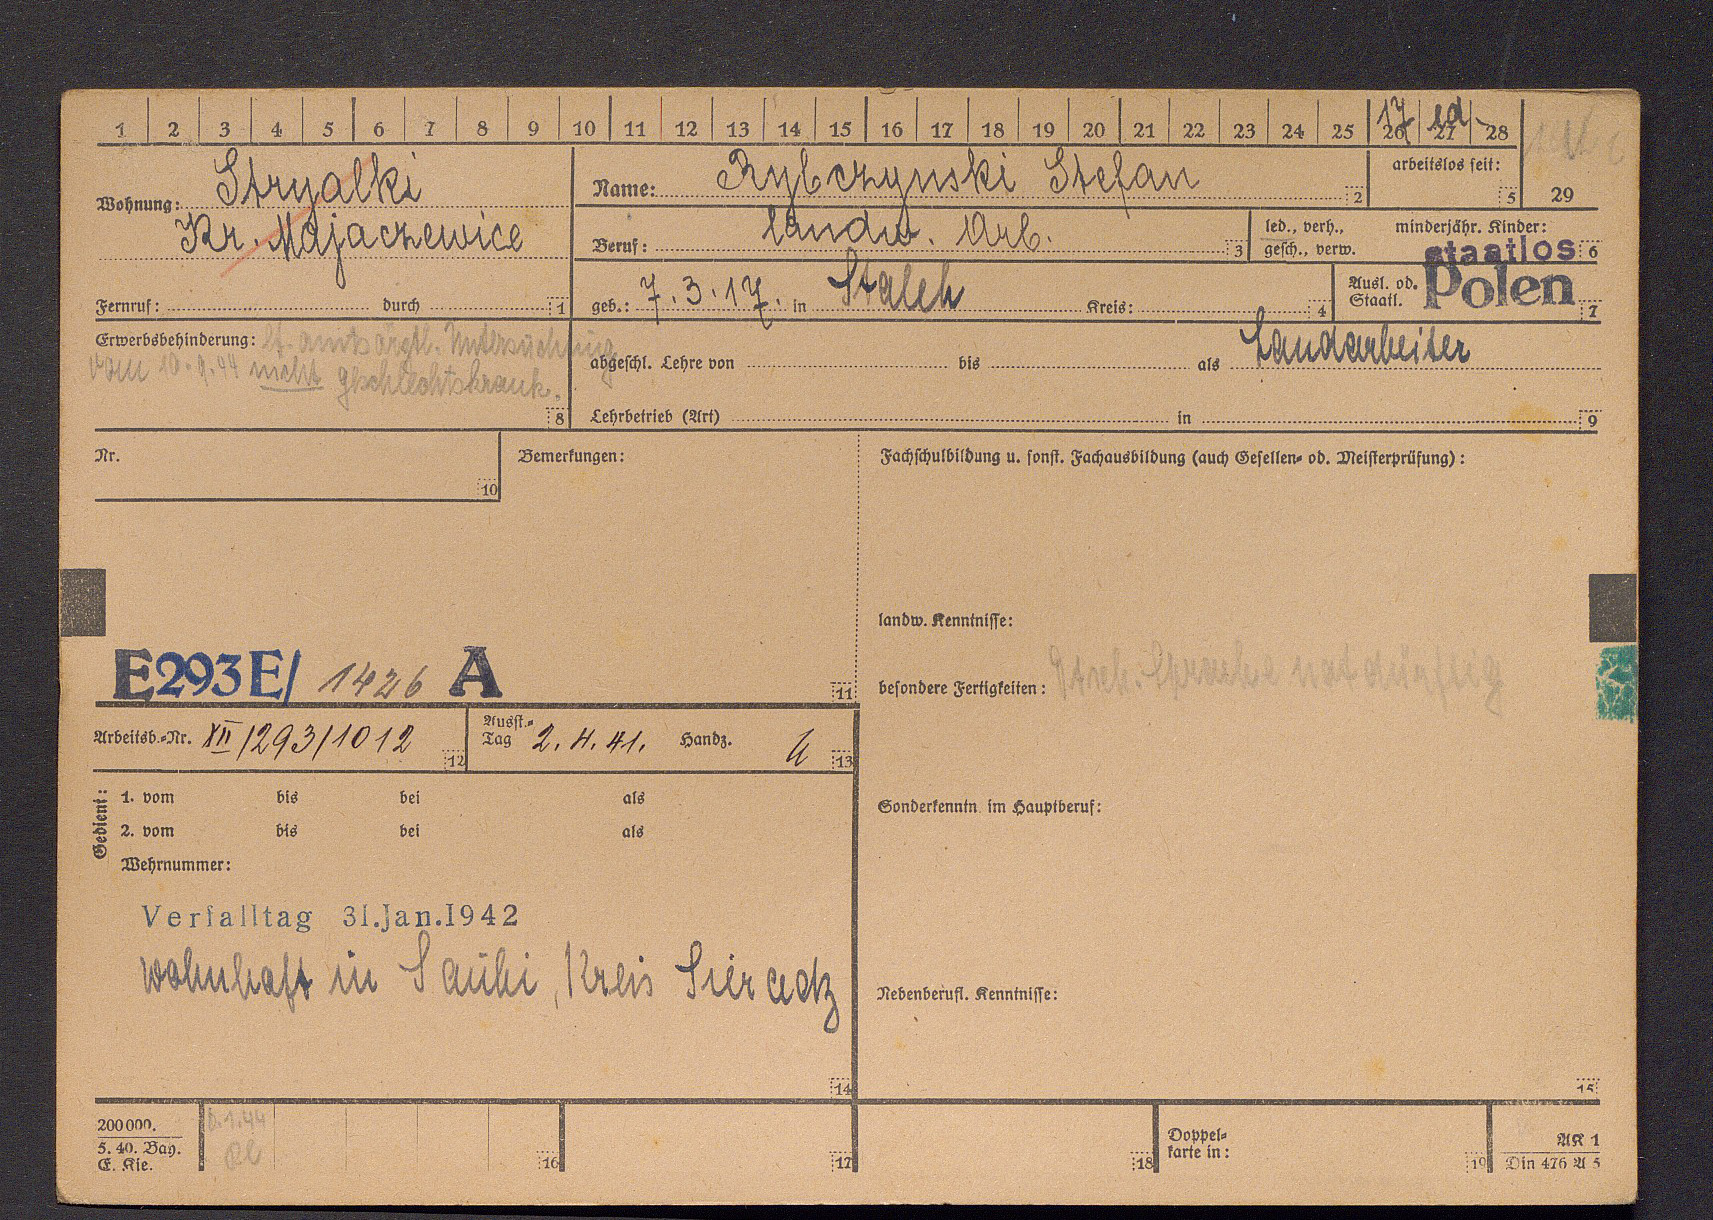 1 2 3 4 5 6 7 8 9 10 11 12 13 14 15 16 17 18 19 20 21 22 23 24 25 26 27 28
17 ed.
Wohnung: Stryalki
Kr. Majaczewice
Fernruf: durch 1
Name: Rybczynski Stefan 2
arbeitslos seit: 5
29
Beruf: landw. Arb. 3
led., verh., gesch., verw.
minderjähr. Kinder: 6
staatlos
geb.: 7.3.17. in Staleh Kreis: 4
Ausl. od. Staatl. Polen 7
Erwerbsbehinderung: lt. amtsärztl. Untersuchung
vom 10.9.44 nicht geschlechtskrank.
8
abgeschl. Lehre von bis als Landarbeiter
Lehrbetrieb (Art) in 9
Nr. 10
Bemerkungen:
Fachschulbildung u. sonst. Fachausbildung (auch Gesellen- od. Meisterprüfung):
landw. Kenntnisse:
E293E/ 1426 A
11
besondere Fertigkeiten: Sprache notdürftig
Arbeitsb.-Nr. XII/293/1012 12
Ausst.-Tag 2.4.41. Handz. 13
Gedient:
1. vom bis bei als
2. vom bis bei als
Wehrnummer:
Sonderkenntn. im Hauptberuf:
Verfalltag 31.Jan.1942
wohnhaft in Sauki, Kreis Sieradz
14
Nebenberufl. Kenntnisse:
15
200000.
5. 40. Bay.
E. Kie.
16 17 18
Doppel-
karte in: 19
AK 1
Din 476 A 5